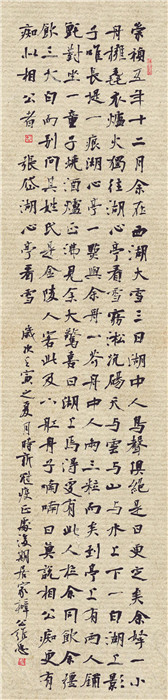 崇禎五年十二月余在西湖大雪三日湖中人鳥聲俱絕是日更定矣余拏一小
舟擁毳衣爐火獨往湖心亭看雪霧淞沆碭天與雲與山與水上下一白湖上影
子唯長堤一痕湖心亭一點與余舟一芥舟中人兩三粒而已到亭上有兩人鋪
氈對坐一童子燒酒爐正沸見余大驚喜曰湖上焉得更有此人拉余同飲余強
飲三大白而別問其姓氏是金陵人客此及下船舟子喃喃曰莫說相公痴更有
痴似相公者 張岱湖心亭看雪 歲次庚寅之夏月時